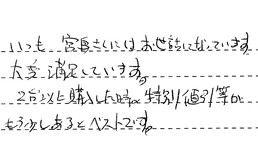 いつも 宮島さんにはお世話になっています。
大変満足しています。
2台以上購入した時の特別値引等が
もう少しあるとベストです。